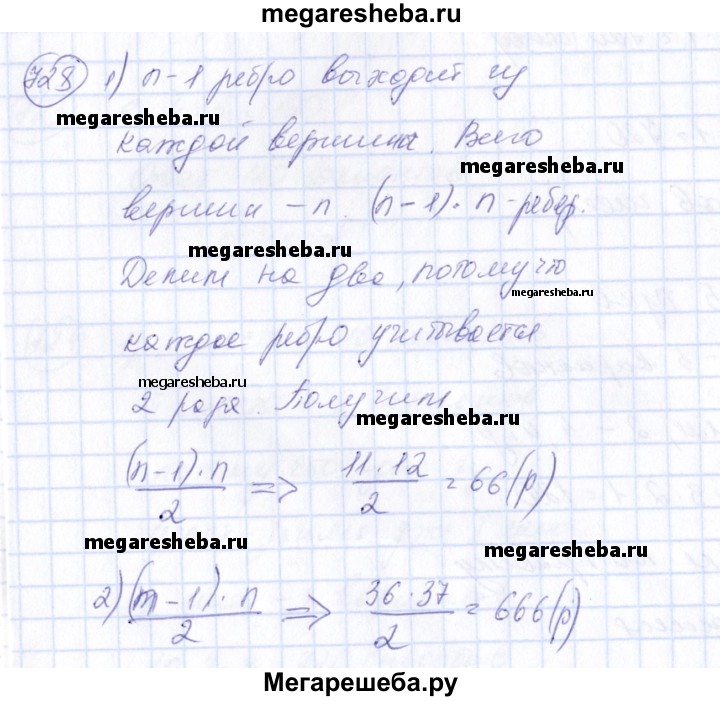 megaresheba.ru
728 1) n-1 ребро выходит из
megaresheba.ru
каждой вершины. Всего
megaresheba.ru
вершин - n. (n-1)·n - ребер.
megaresheba.ru
Делим на два, потому что
megaresheba.ru
каждое ребро учитывается
megaresheba.ru
2 раза. Получим
megaresheba.ru
(n-1)·n / 2 => 11·12 / 2 = 66(р)
megaresheba.ru
megaresheba.ru
2) (n-1)·n / 2 => 36·37 / 2 = 666(р)
megaresheba.ru
Мегарешеба.ру